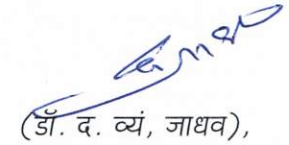 (डॉ. द. व्यं, जाधव),